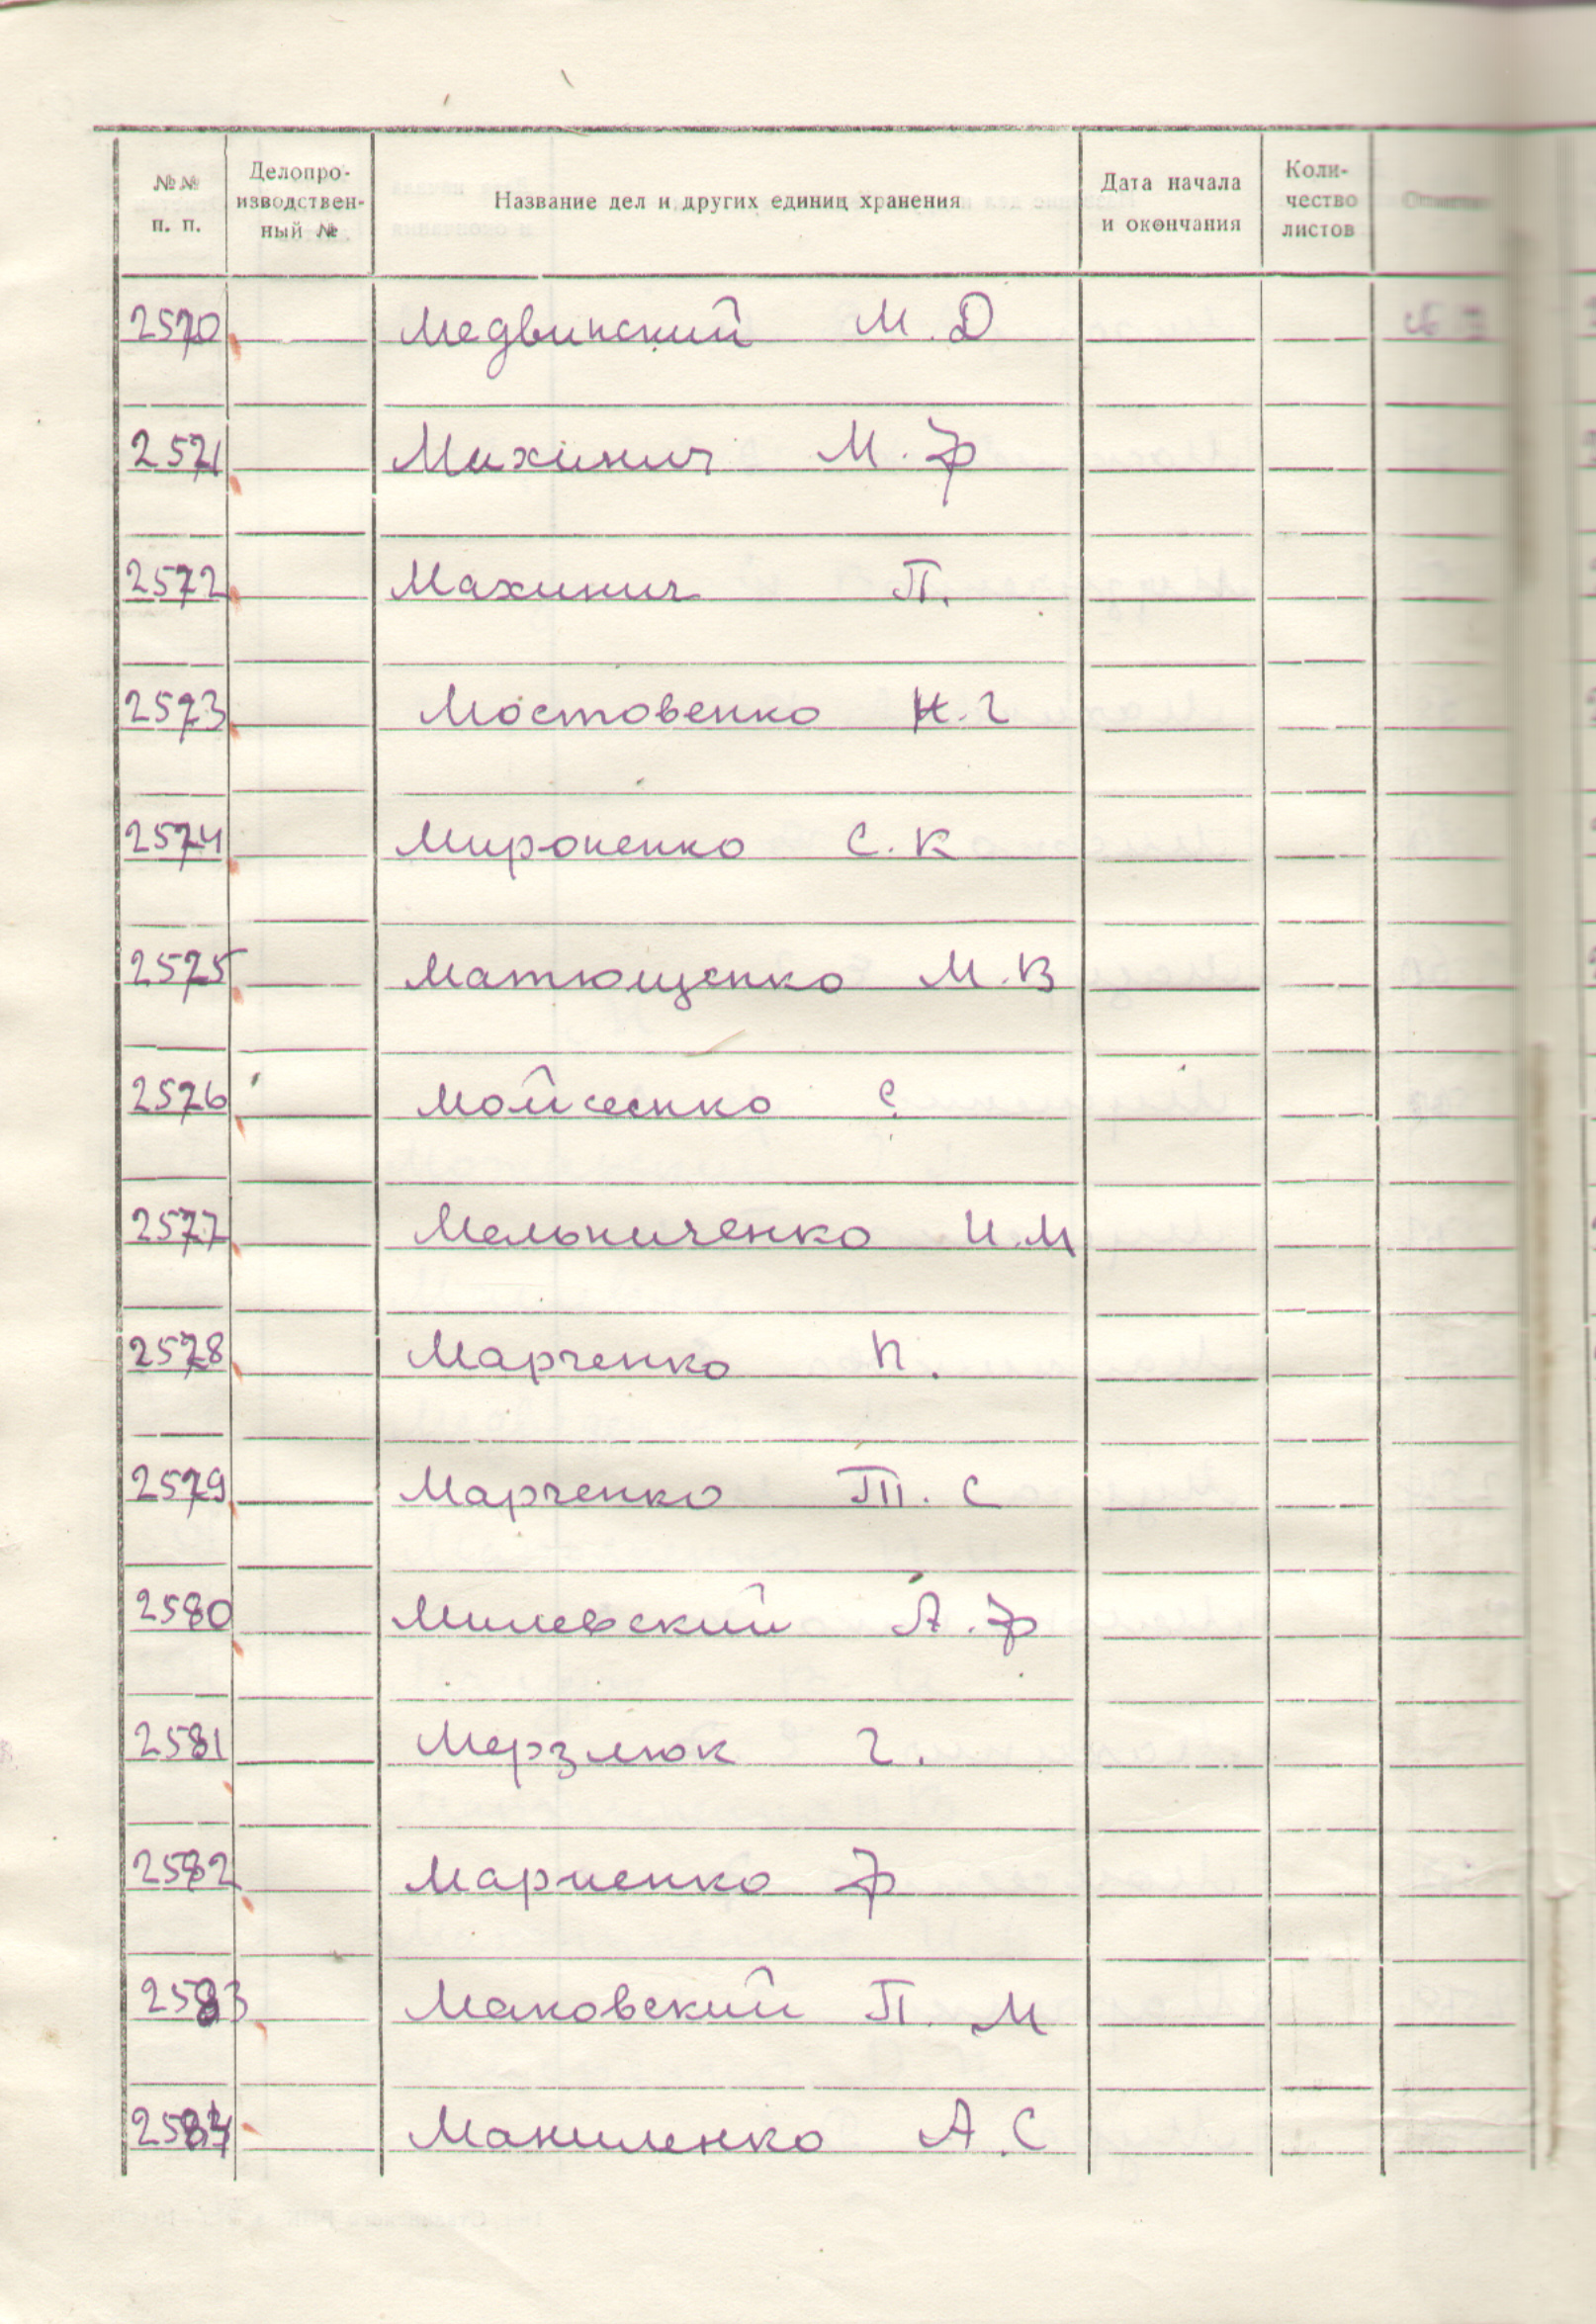 №№ п. п. Делопро-изводствен-ный № Название дел и других единиц хранения Дата начала и окончания Коли-чество листов
2570 Медвинский М. Д
2571 Михинич М. Ф
2572 Махинич П.
2573 Мостовенко Н. Г
2574 Мироненко С. К
2575 Матющенко М. В
2576 Мойсеенко С.
2577 Мельниченко И. М
2578 Марченко П.
2579 Марченко Т. С
2580 Милевский А. Ф
2581 Мерзлюк Г.
2582 Мариенко Ф
2583 Маковский П. М
2584 Маниленко А. С